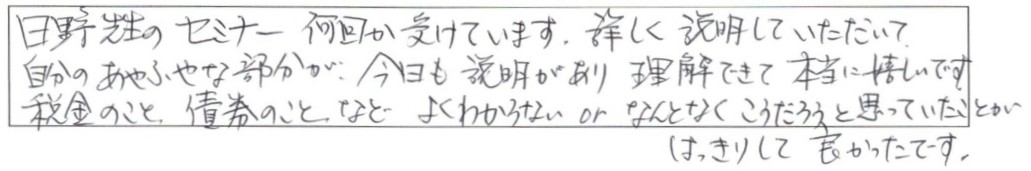 日野先生の セミナー 何回か受けています。詳しく説明していただいて、
自分のあやふやな部分が、今日も説明があり 理解できて 本当に嬉しいです
税金のこと、債券のこと、など よくわからない or なんとなくこうだろうと思っていたことが
はっきりして 良かったです。